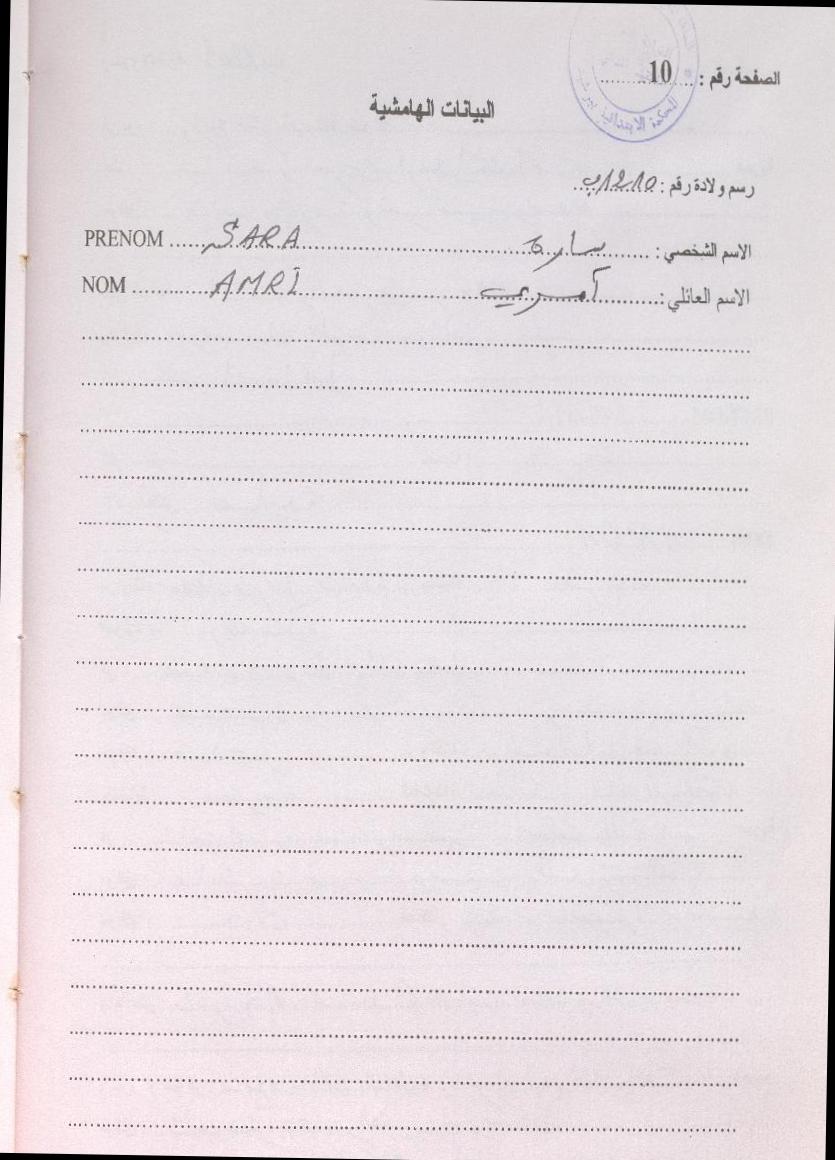 الصفحة رقم : 10
المحكمة الابتدائية
البيانات الهامشية
رسم ولادة رقم :
الاسم الشخصي : سارة SARA PRENOM
الاسم العائلي : آمري AMRI NOM